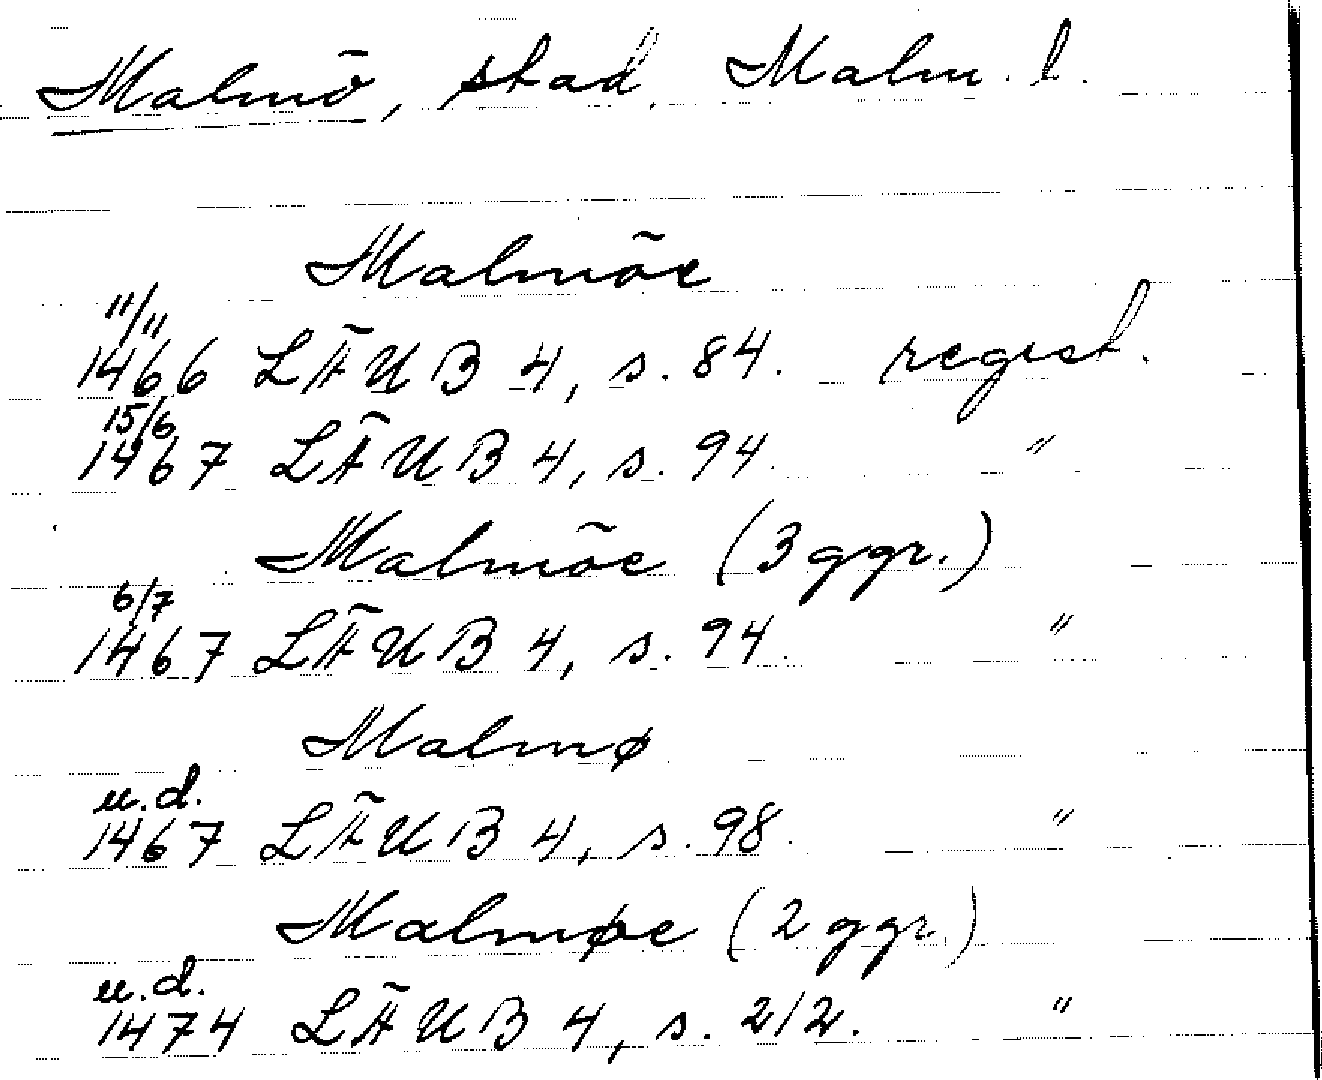 Malmö, stad. Malm. l.
Malmöe
11/11
1466 LÄUB 4, s. 84. regist.
15/6
1467 LÄUB 4, s. 94. "
Malmöe (3 ggr.)
6/7
1467 LÄUB 4, s. 94. "
Malmø
u.d.
1467 LÄUB 4, s. 98. "
Malmøe (2 ggr.)
u.d.
1474 LÄUB 4, s. 212. "